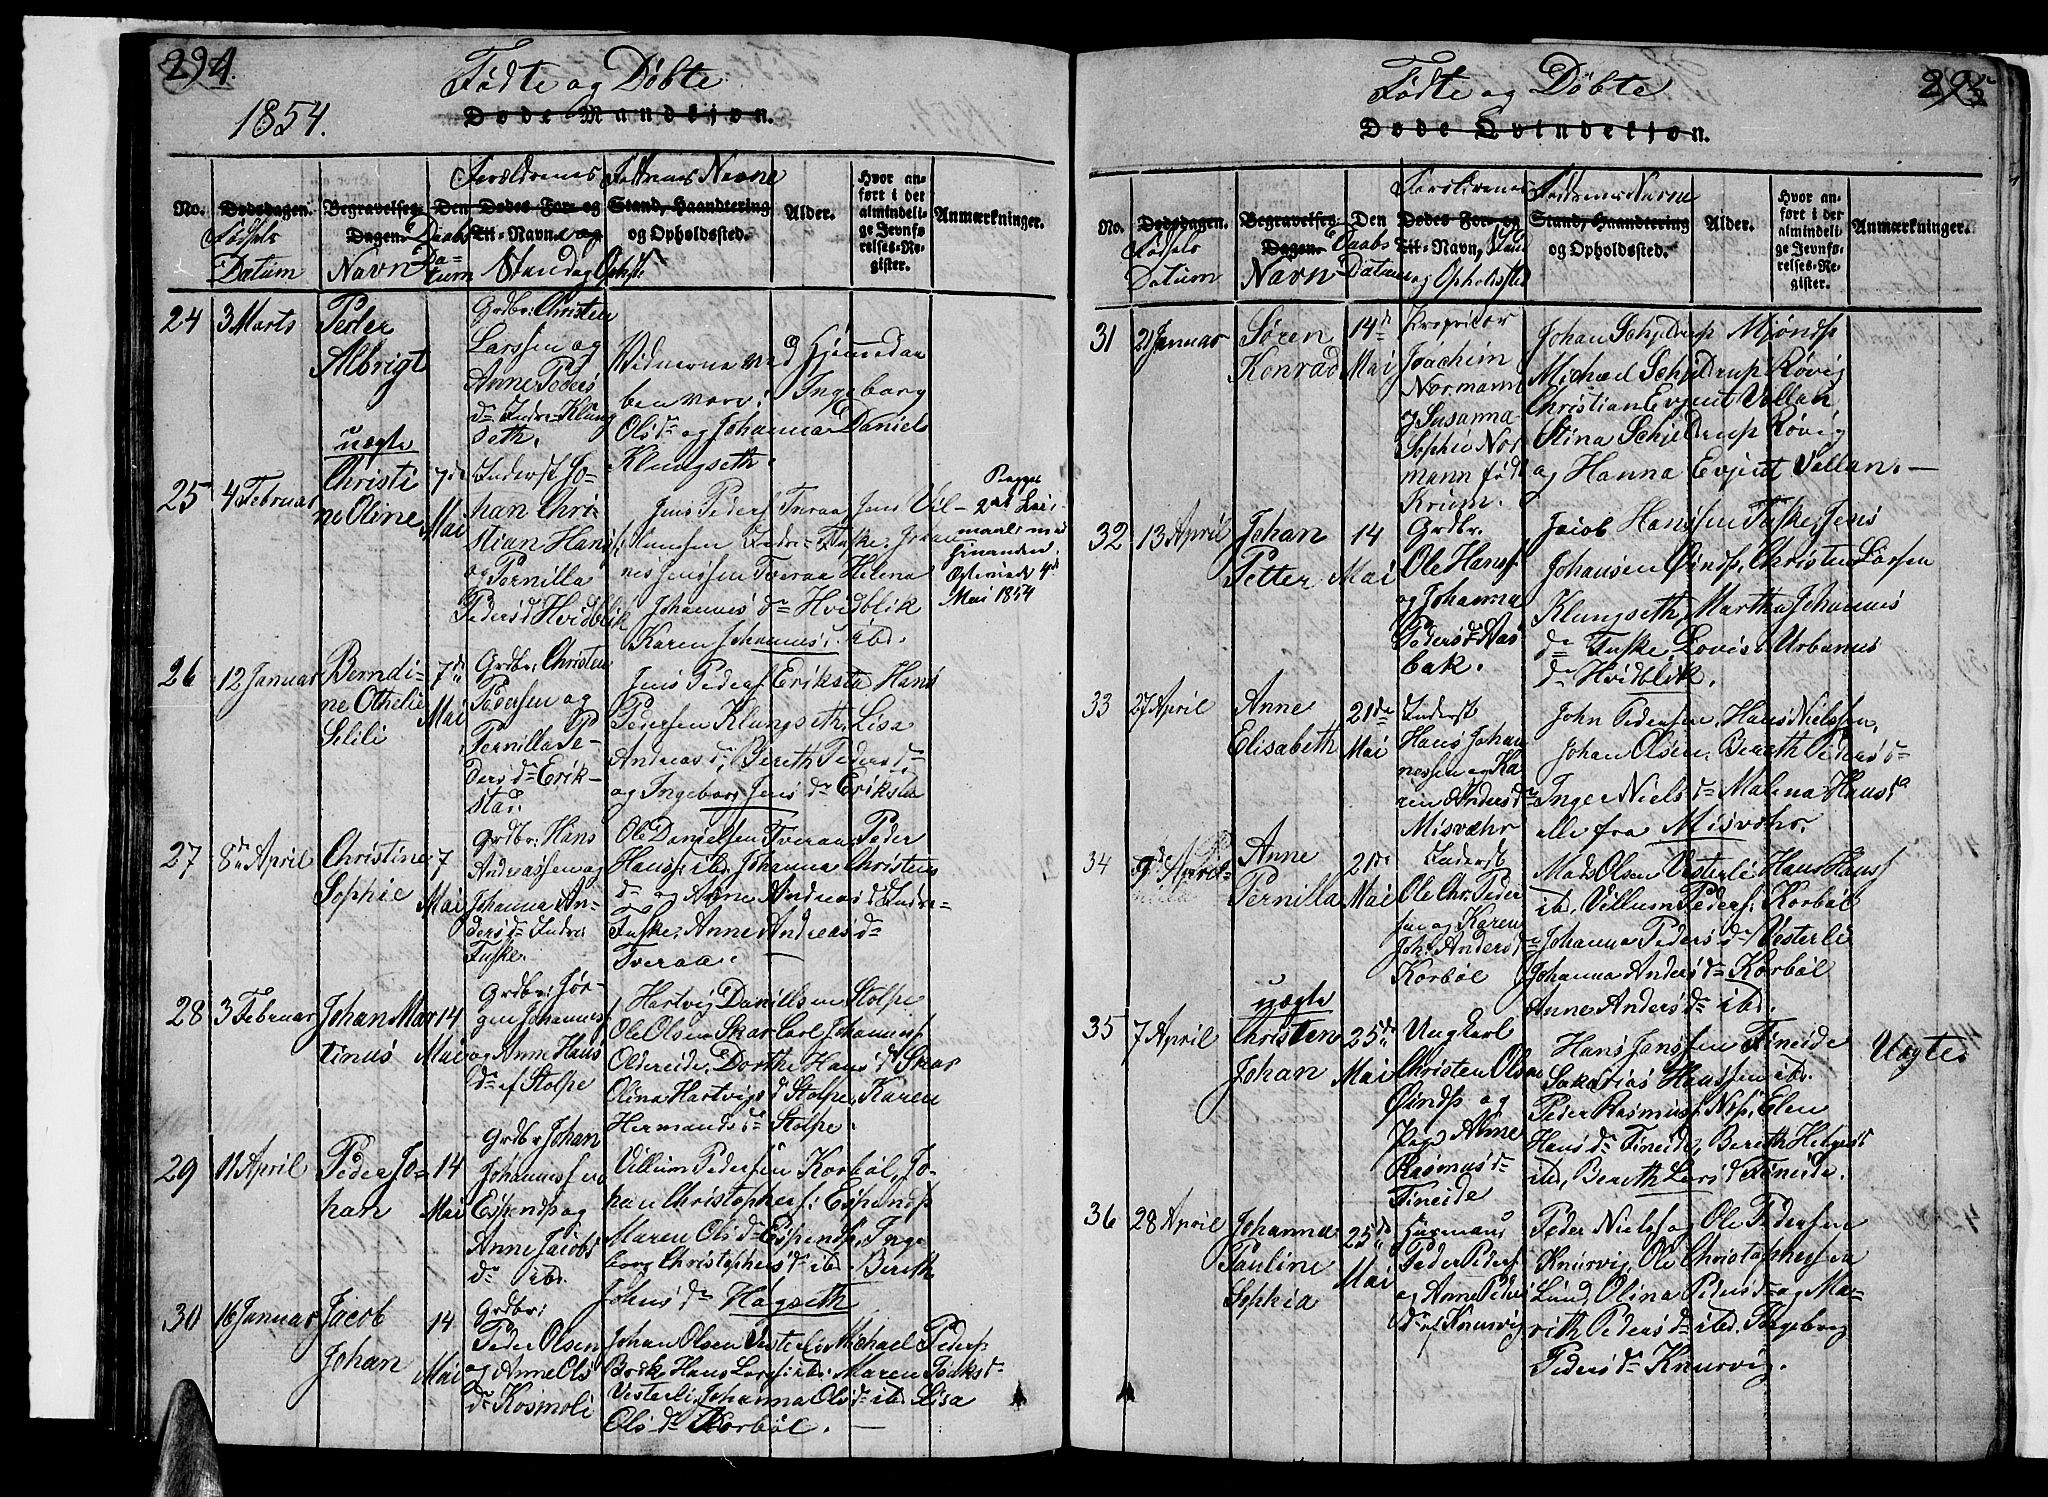 294.
Fødte og Døbte
1854.
Døde Mandkjøn.
Forældrenes
Faddrenes Navne
No.
Dødsdagen.
Begravelses-Dagen.
Den Dødes For- og Til-Navn.
Stand, Haandtering og Opholdssted.
Alder.
Hvor anført i det almindelige Jevnførelses-Register.
Anmærkninger.
Fødsels Datum
Navn
Daabs Datum
og Stand og Opholdsst
24
3 Marts
Peder
Albrigt
Grdbr: Christen
Larssen og
Anne Peders
dr Indre Klung
seth.
Vidnerne ved Hjemmedaa
ben vare: Ingeborg
Olsdr og Johanna Daniels
Klungseth.
uægte
25
4 Februar
Christi
ne Oline
7de
Mai
Inderst Jo-
han Chri-
stian Hans
og Pernilla
Pedersdr Hvidblik
Jens Peders Tveraa Jens Vil-
lumsen Indre Fuske, Johan
nes Jenssen Tveraa Helena
Johannesdr Hvidblik
Karen Johannesdr ibd.
2det Leier-
maal
Mai 1854
26
12 Januar
Berndi-
ne Othelie
Selili
7de
Mai
Grdbr: Christen
Pedersen og
Pernilla Pe-
dersdr Erik-
stad.
Jens Peders Eriksta Hans
Pedersen Klungseth, Lisa
Andreasdr, Bereth Pedersdr
og Ingeborg Jensdr Eriksta
27
8de April
Christine
Sophie
7
Mai
Grdbr: Hans
Andreassen og
Johanna An-
dersdr Indre
Fuske.
Ole Danielsen Tveraa Peder
Hanss: ibd. Johanna Christens
dr og Anne Andreasdr Indre-
Fuske, Anne Andreasdr
Tveraa.
28
3 Februar
Johan Mar
tinus
14
Mai
Grdbr: Jør-
gen Johannes:
og Anne Hans
dr af Stolpe
Hartvig Daniellsen Stolpe
Ole Olsen Skar Carl Johannes
Oldereide, Dorthe Hansdr Skar
Olina Hartvigsdr Stolpe, Karen
Hermandsdr Stolpe.
29
11 April
Peder Jo-
han
14
Mai
Grdbr Johan
Johannessen
Espendp og
Anne Jacobs
dr ibd.
Villum Pedersen Korbøl, Jo-
han Christophers: Espendp
Maren Olsdr Espendp, Inge
borg Christophersdr ibd. Bereth
Johnsdr Hagseth
30
16 Januar
Jacob
Johan
14
Mai
Grdbr:
Peder Olsen
og Anne Ols
dr Kosmoli
Johan Olsen Vesterli Michael Peders
Hans Lars: ibd. Maren
Vesterli, Johanna Olsdr ibd. Lisa
Olsdr Korbøl.
295
Fødte og Døbte
Døde Qvindekjøn.
Forældrenes
Faddrenes Navne
No.
Dødsdagen.
Begravelses-Dagen.
Den Dødes For- og Til-Navn,
Stand, Haandtering og Opholdssted.
Alder.
Hvor anført i det almindelige Jevnførelses-Register.
Anmærkninger.
Fødsels Datum
Navn
Daabs Datum
Stand og Opholdssted
31
2 Januar
Søren
Konrad
14de
Mai
Proprietær
Joachim
Normann
og Susanna
Sophie Nor
mann født
Krium.
Johan Schjeldrup Mjøndp
Michael Schjeldrup Røvig
Christian Evjent Vollan
Stina Schjeldrup Røvig
og Hanna Evjent Vollan.
32
13 April
Johan
Petter
14
Mai
Grdbr.
Ole Hans:
og Johanna
Pedersdr Aas
bak.
Jacob Hanssen Fuske, Jens
Johansen Øindp, Christen Larsen
Klungseth, Martha Johannes
dr Fuske, Lovise Urbanus
dr Hvidblik.
33
27 April
Anne
Elisabeth
21de
Mai
Inderst
Hans Johan
nessen og Ka
ren Andersdr
Misvæhr
John Pedersen, Hans Nielssen,
Johan Olsen, Bereth Pedersdr
Inger Nielsdr Malena Hansdr
alle fra Misvæhr.
34
9de April
Anne
Pernilla
21de
Mai
Inderst
Ole Chr. Peder
sen og Karen
Joh. Andersdr
Korbøl
Mads Olsen Vesterli Hans Hans:
ibd. Villum Peders: Korbøl
Johanna Pedersdr Vesterli
Johanna Andersdr Korbøl
Anne Andersdr ibd.
uægte
35
7 April
Christen
Johan
25de
Mai
Ungkarl
Christen Olsen
Øindp og
Pige Anne
Rasmusdr
Fineide
Hans Janssen Fineide
Sakarias Hanssen ibd.
Peder Rasmus: Nøs, Elen
Hansdr Fineide, Bereth Helgesd
ibd, Bereth Larsdr Fineide.
Uægte
36
28 April
Johanna
Pauline
Sophia
25de
Mai
Huusmand
Peder Peders:
og Anne Peders
dr af Knurvig
Peder Niels: og Ole Pedersen
Knurvig, Ole Christophersen
Lund, Olina Pedersdr og Ma-
rith Pedersdr ibd. Ingeborg
Pedersdr Knurvig.